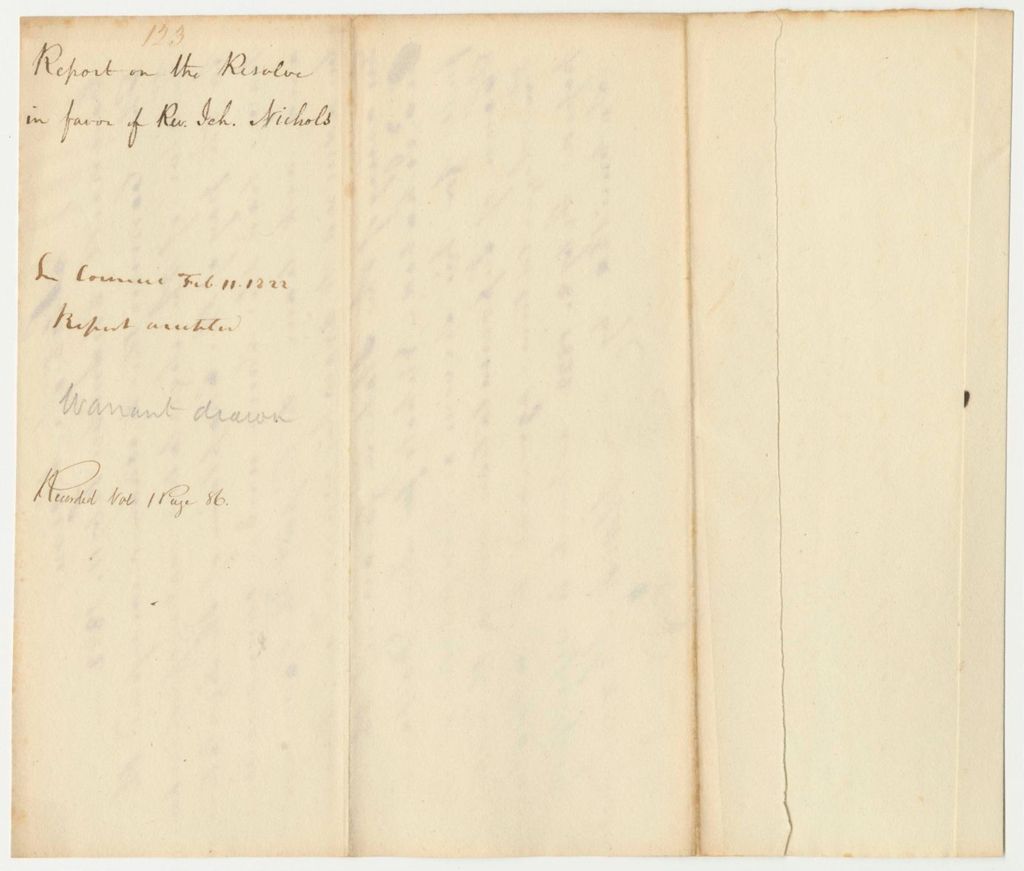 123
Report on the Resolve
in favor of Rev. Ich. Nichols
In Council Feb 11. 1822
Report accepted
Warrant drawn
Recorded Vol 1 Page 86.